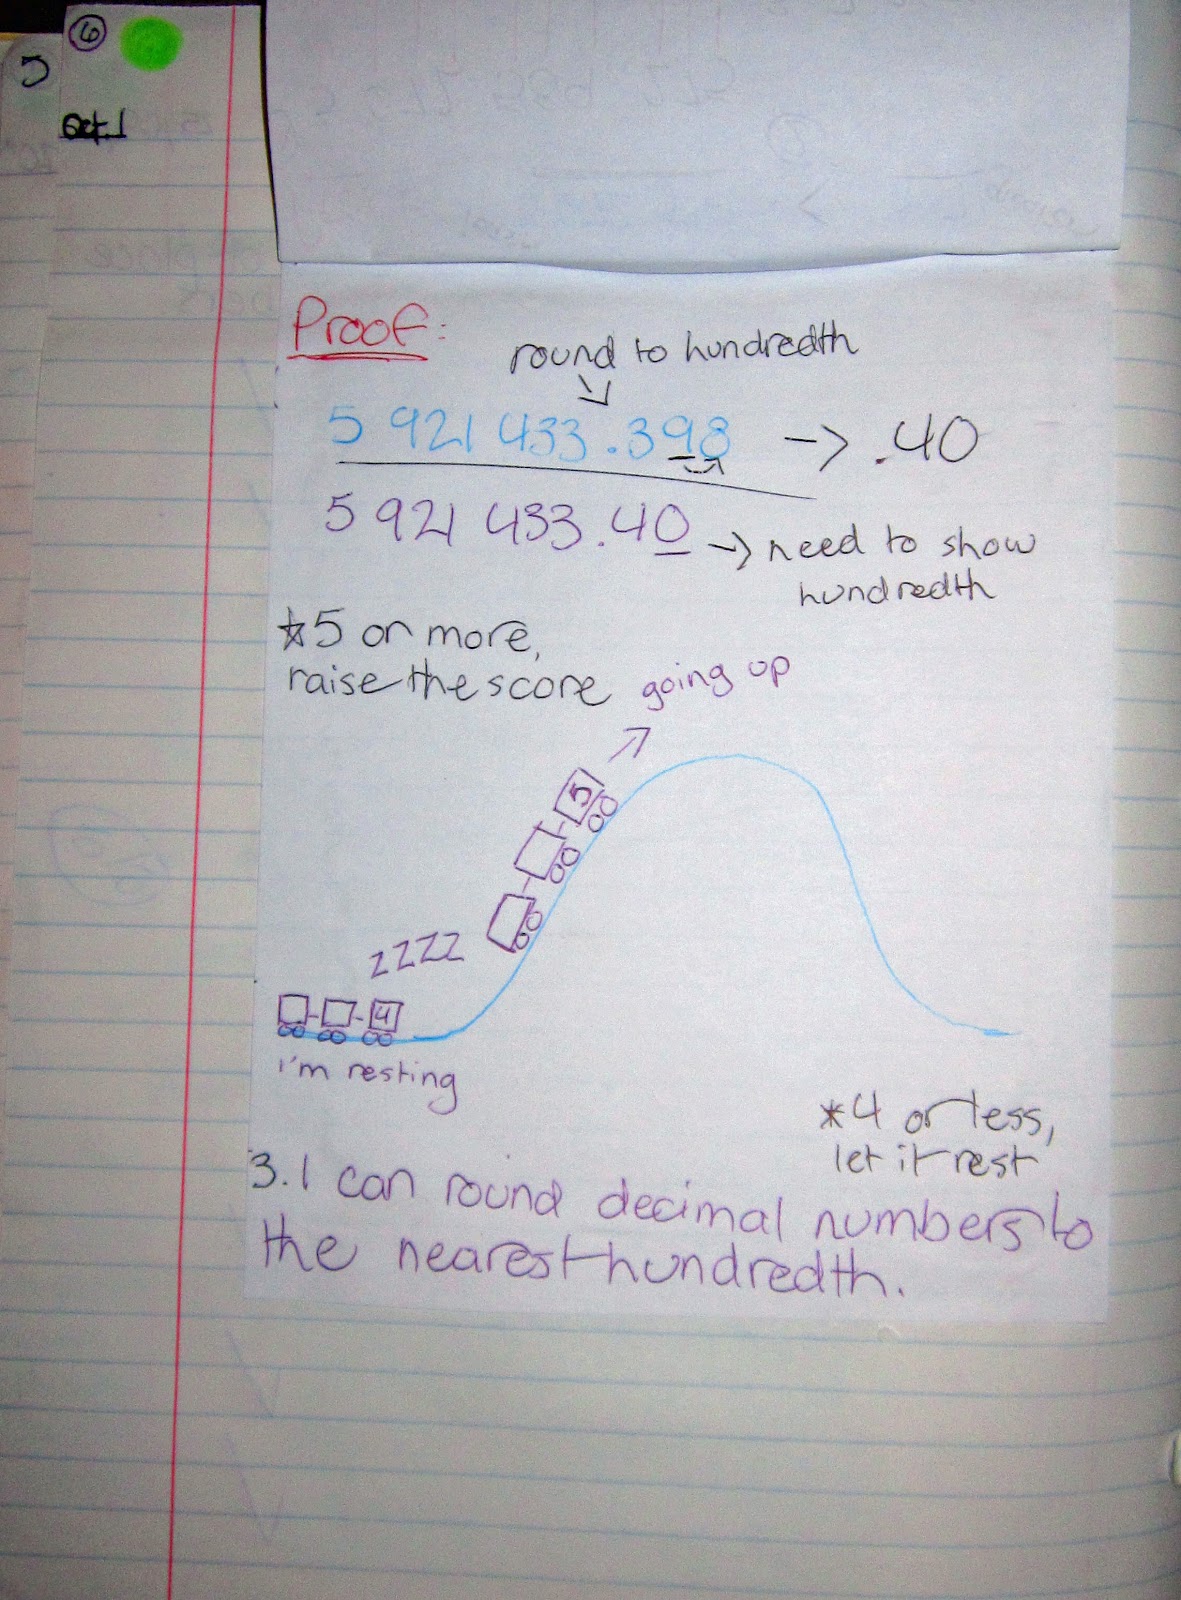 6
5
Oct. 1
Proof:
round to hundredth
5 921 433.398 → .40
5 921 433.40 → need to show
hundredth
*5 or more,
raise the score
going up
5
zzzz
4
I'm resting
*4 or less,
let it rest
3. I can round decimal numbers to
the nearest hundredth.